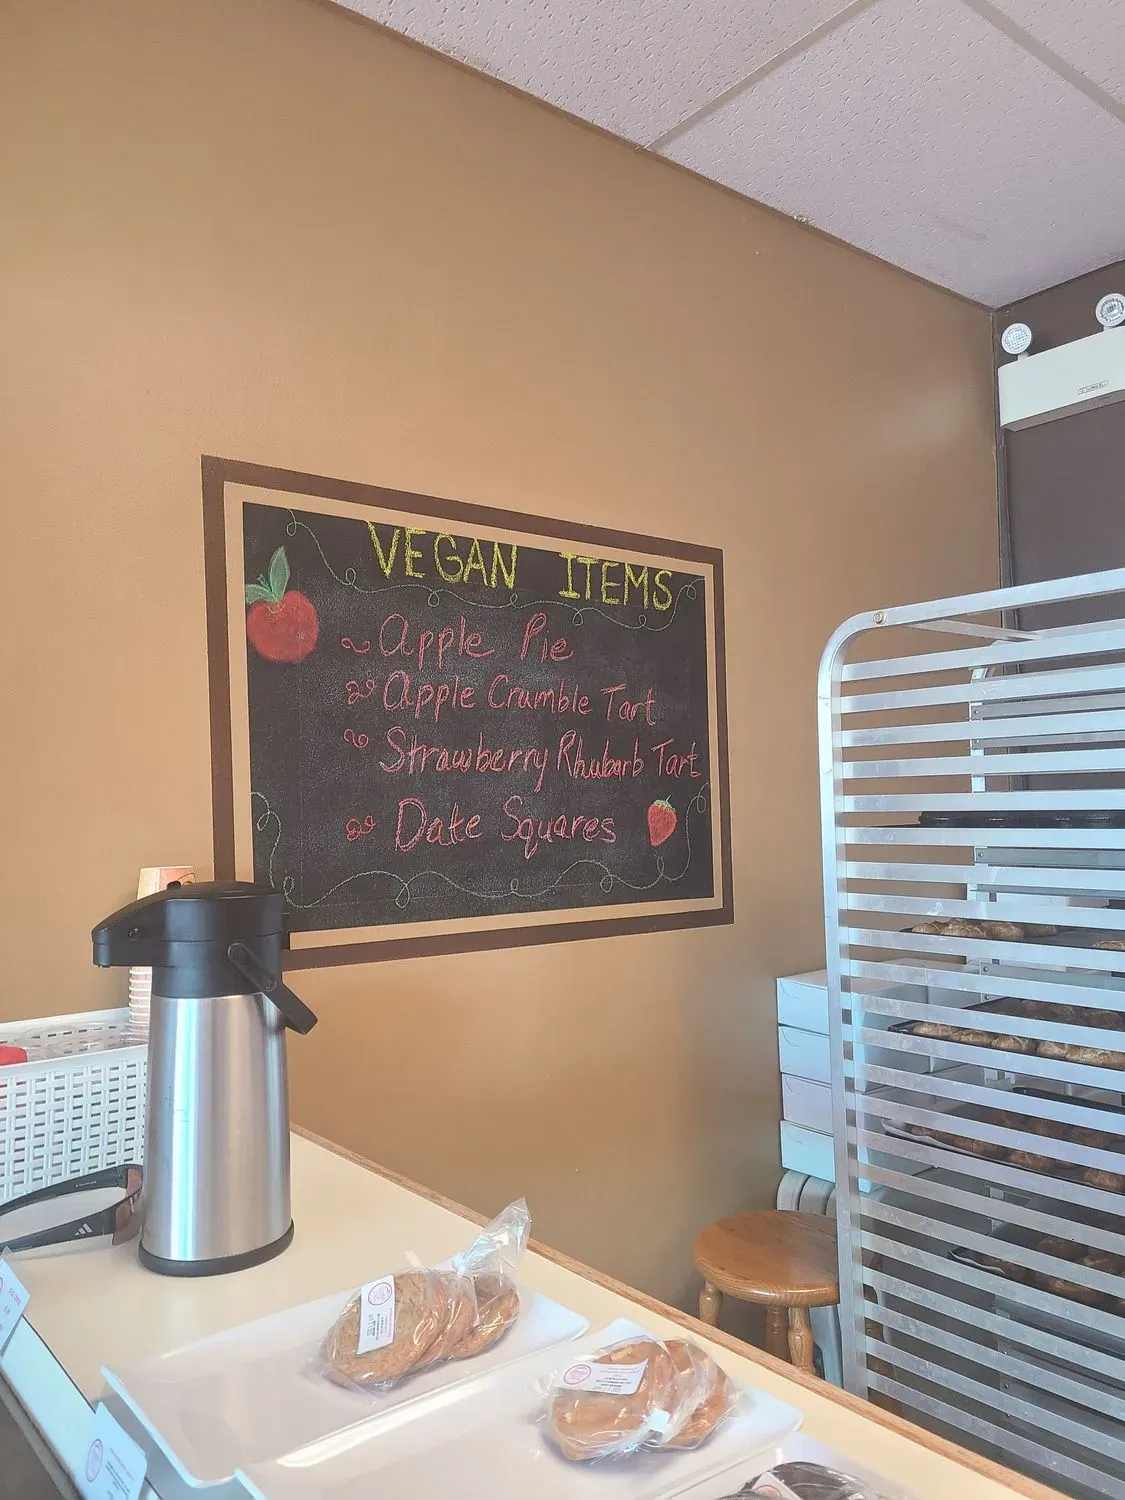 VEGAN ITEMS
Apple Pie
Apple Crumble Tart
Strawberry Rhubarb Tart
Date Squares